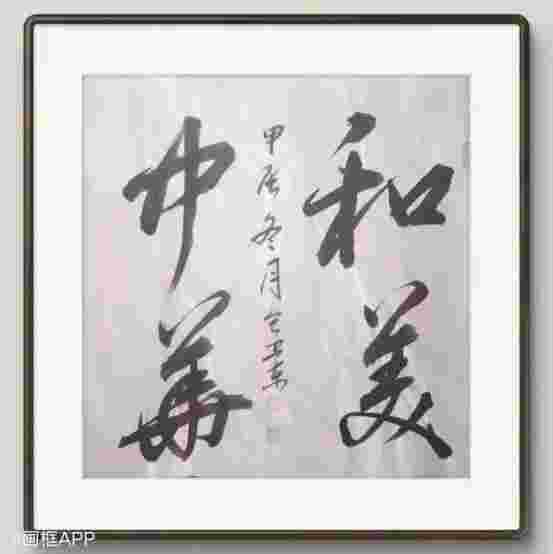 和美
中華
甲辰冬月
画框APP